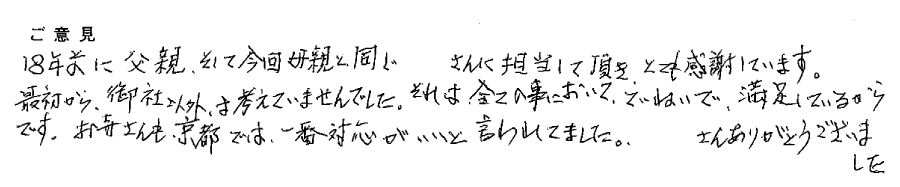 ご意見
18年前に父親、そして今回母親と同じ　　さんに担当して頂きとても感謝しています。
最初から、御社以外は考えていませんでした。それは全ての事において、ていねいで、満足しているから
です。お寺さんも京都では、一番対応がいいと言われてました。　　さんありがとうございま
した